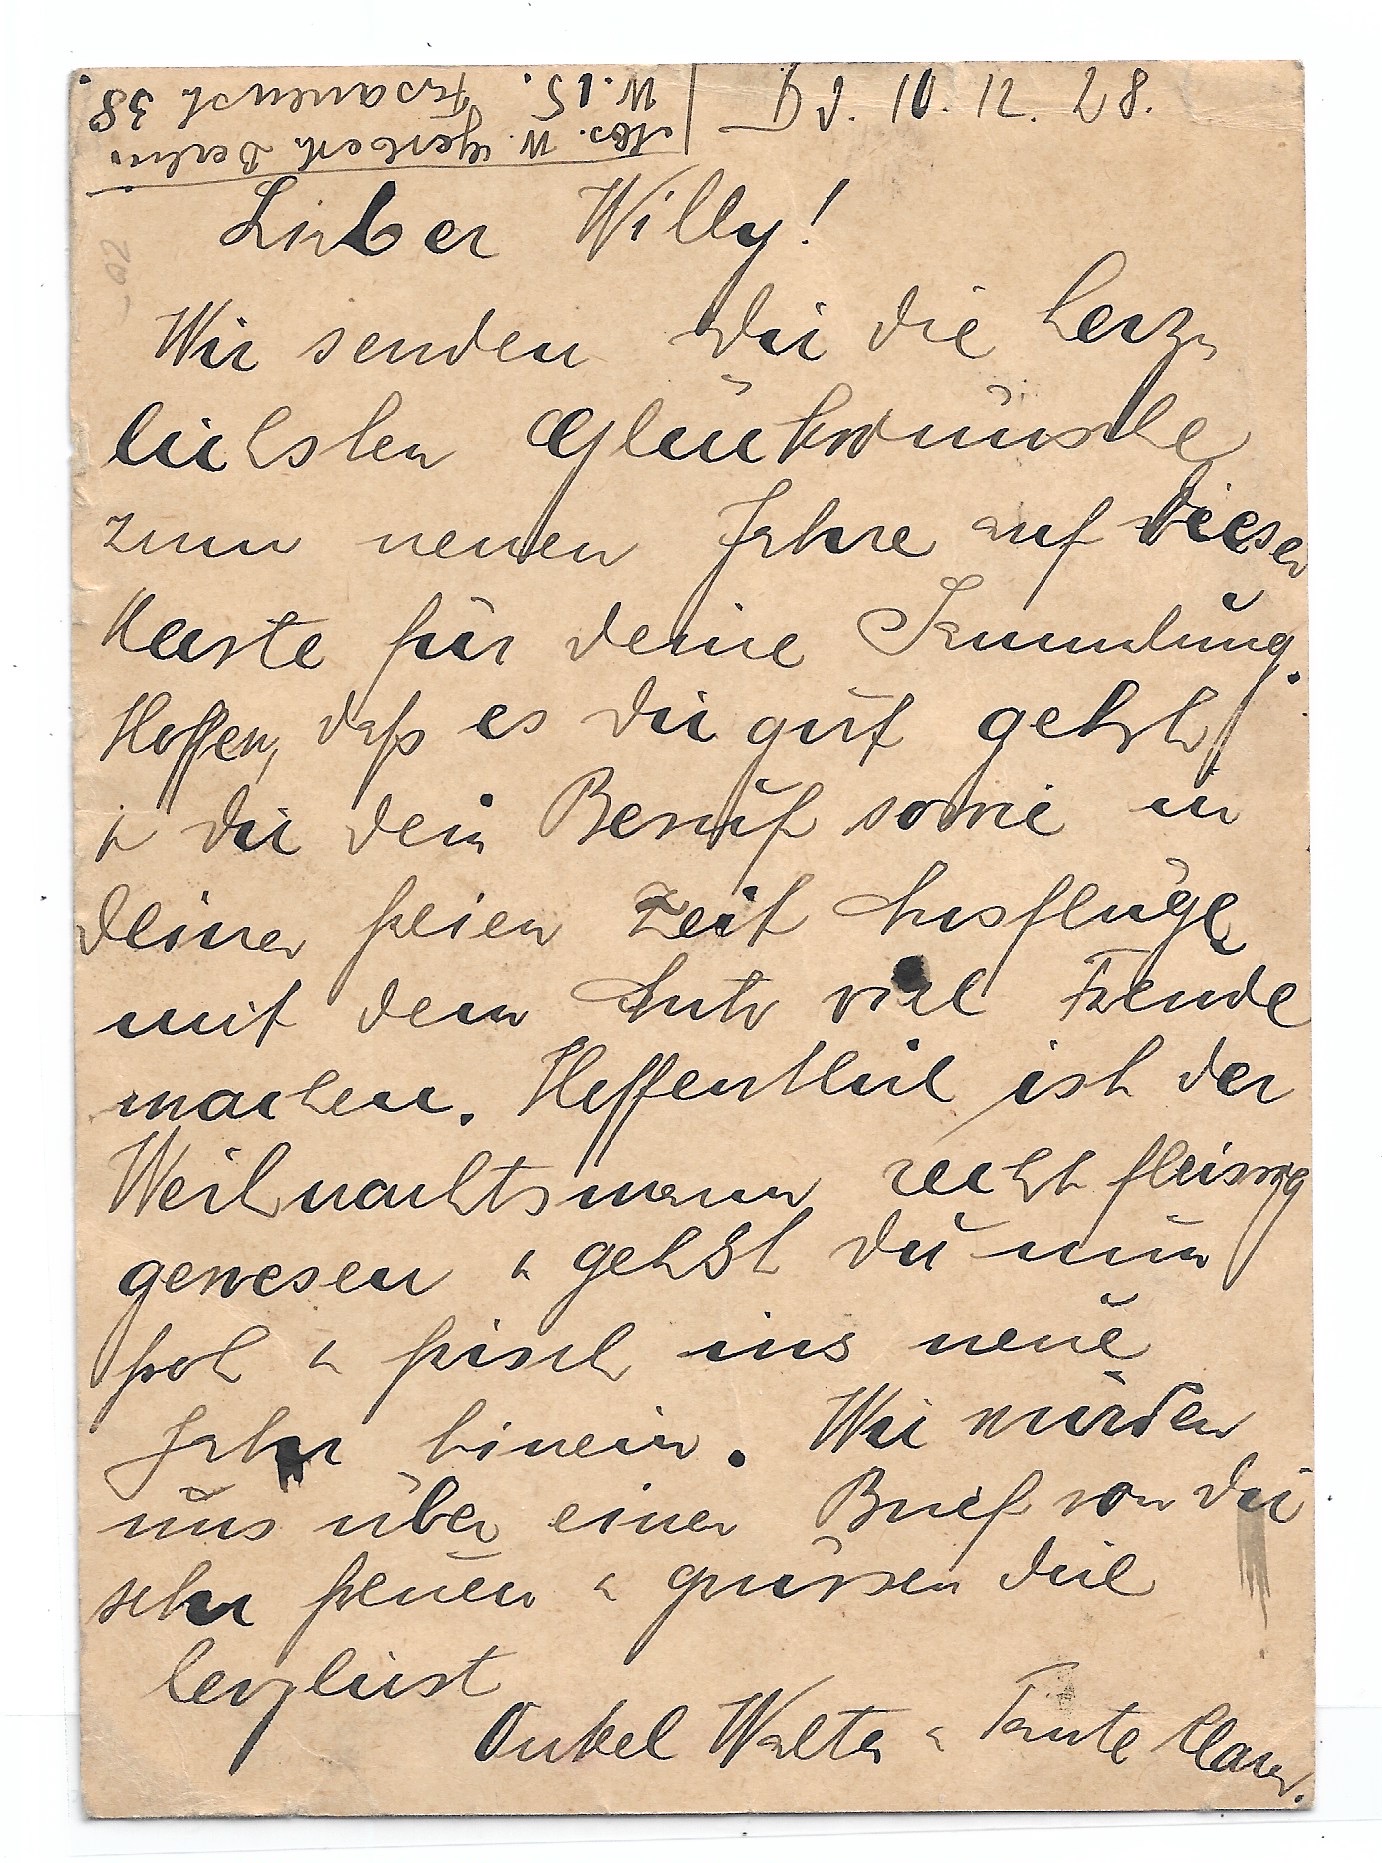 Abs. W. Gerbeth Berlin
W. 15. Fasanenstr. 38
d. 10. 12. 28.
Lieber Willy!
Wir senden Dir die herz-
lichsten Glückwünsche
zum neuen Jahre auf dieser
Karte für deine Sammlung.
Hoffen, daß es Dir gut geht
u Dir dein Beruf sowie in
deiner freien Zeit Ausflüge
mit dem Auto viel Freude
machen. Hoffentlich ist der
Weihnachtsmann recht fleissig
gewesen u gehst Du nun
froh u frisch ins neue
Jahr hinein. Wir würden
uns über einen Brief von Dir
sehr freuen u grüssen dich
herzlichst
Onkel Walter u Tante Clara.